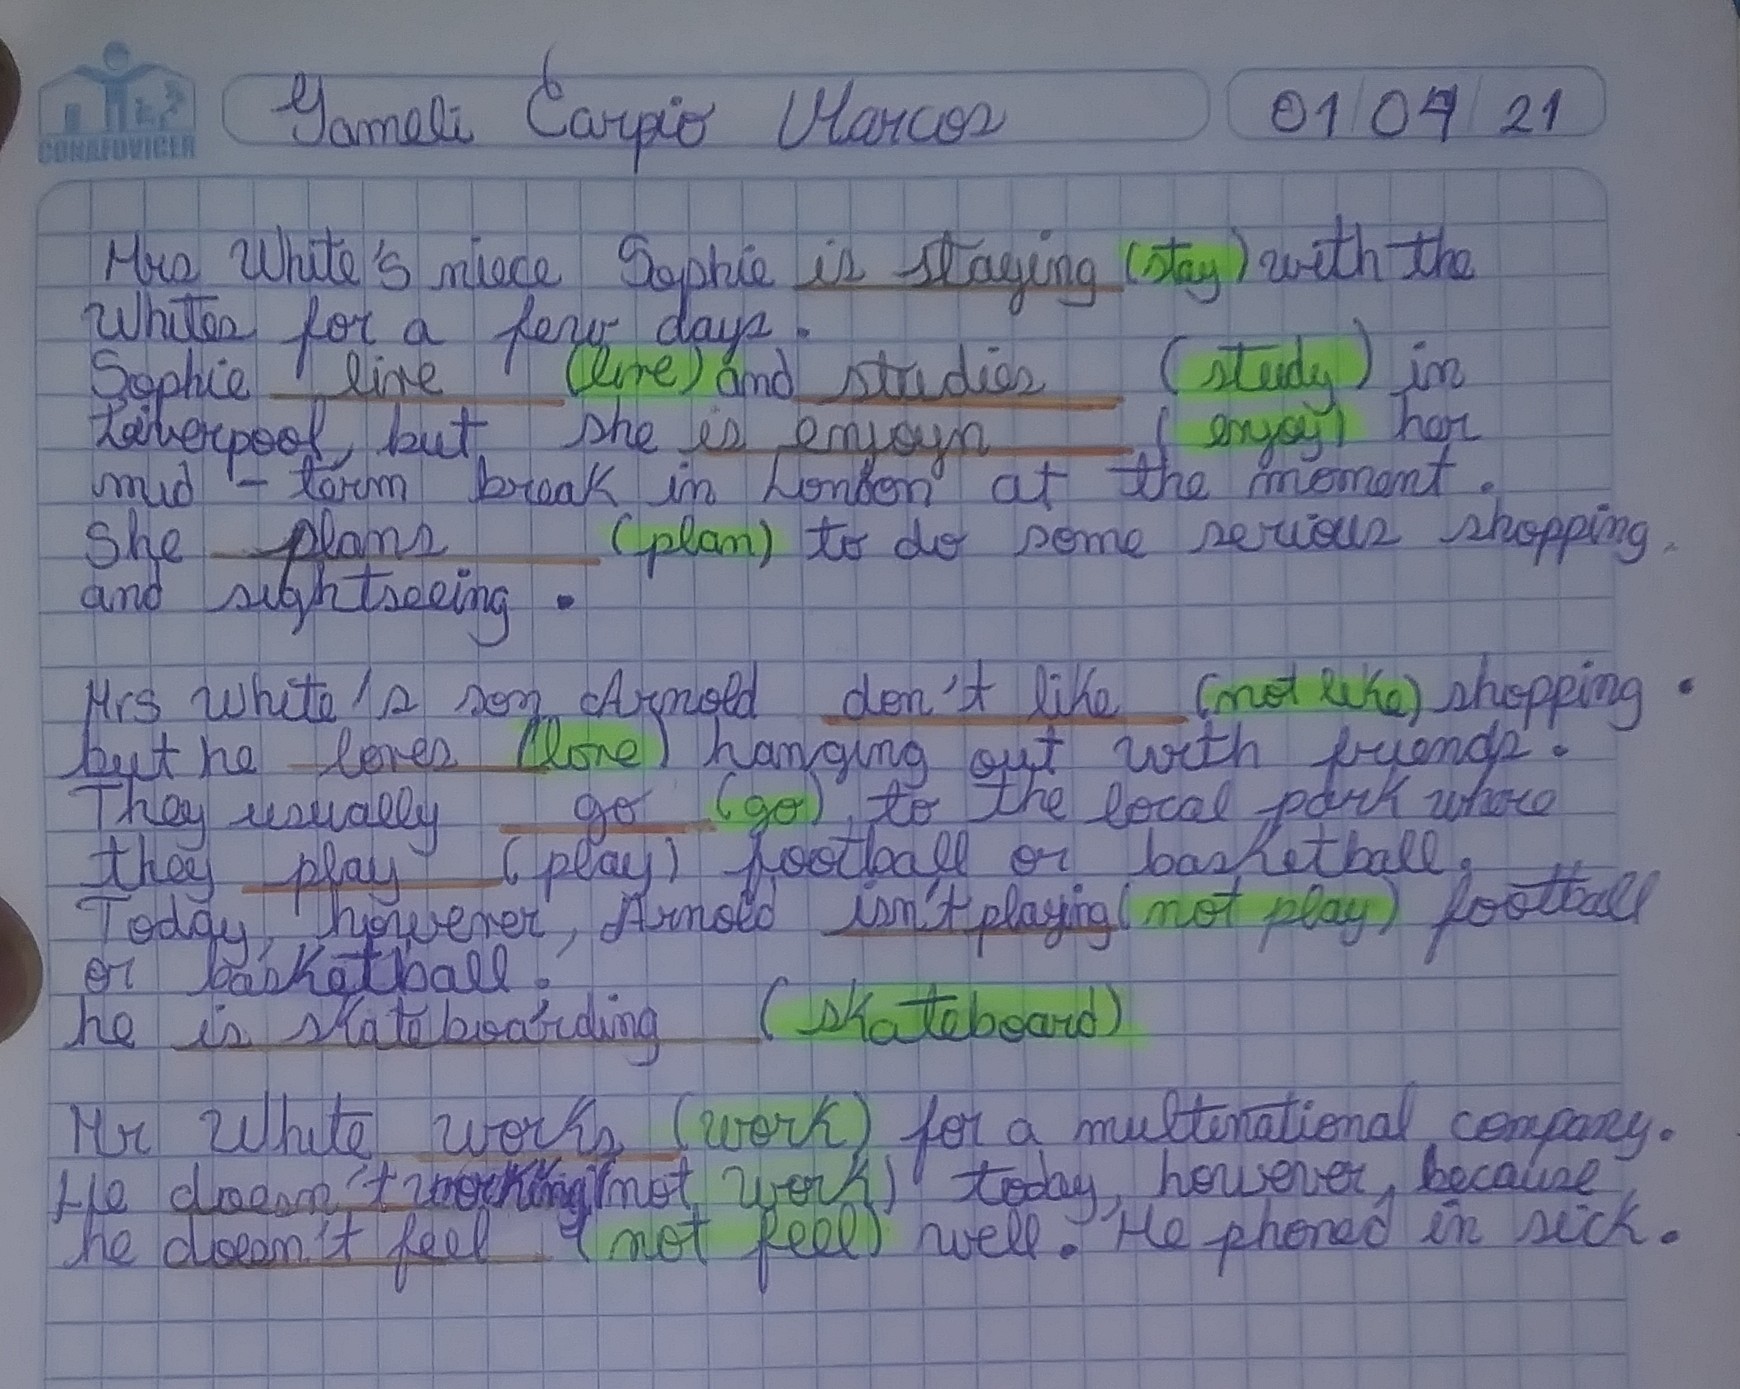 CONAFOVICER
Yameli Carpio Marcos 01/04/21
Mrs White's niece Sophie is staying (stay) with the
Whites for a few days.
Sophie live (live) and studies (study) in
Liverpool, but she is enjoyn (enjoy) her
mid-term break in London at the moment.
She plans (plan) to do some serious shopping
and sightseeing.
Mrs White's son Arnold don't like (not like) shopping.
but he loves (love) hanging out with friends.
They usually go (go) to the local park where
they play (play) football or basketball.
Today, however, Arnold isn't playing (not play) football
or basketball.
he is skateboarding (skateboard)
Mr White works (work) for a multinational company.
He doesn't working (not work) today, however, because
he doesn't feel (not feel) well. He phoned in sick.